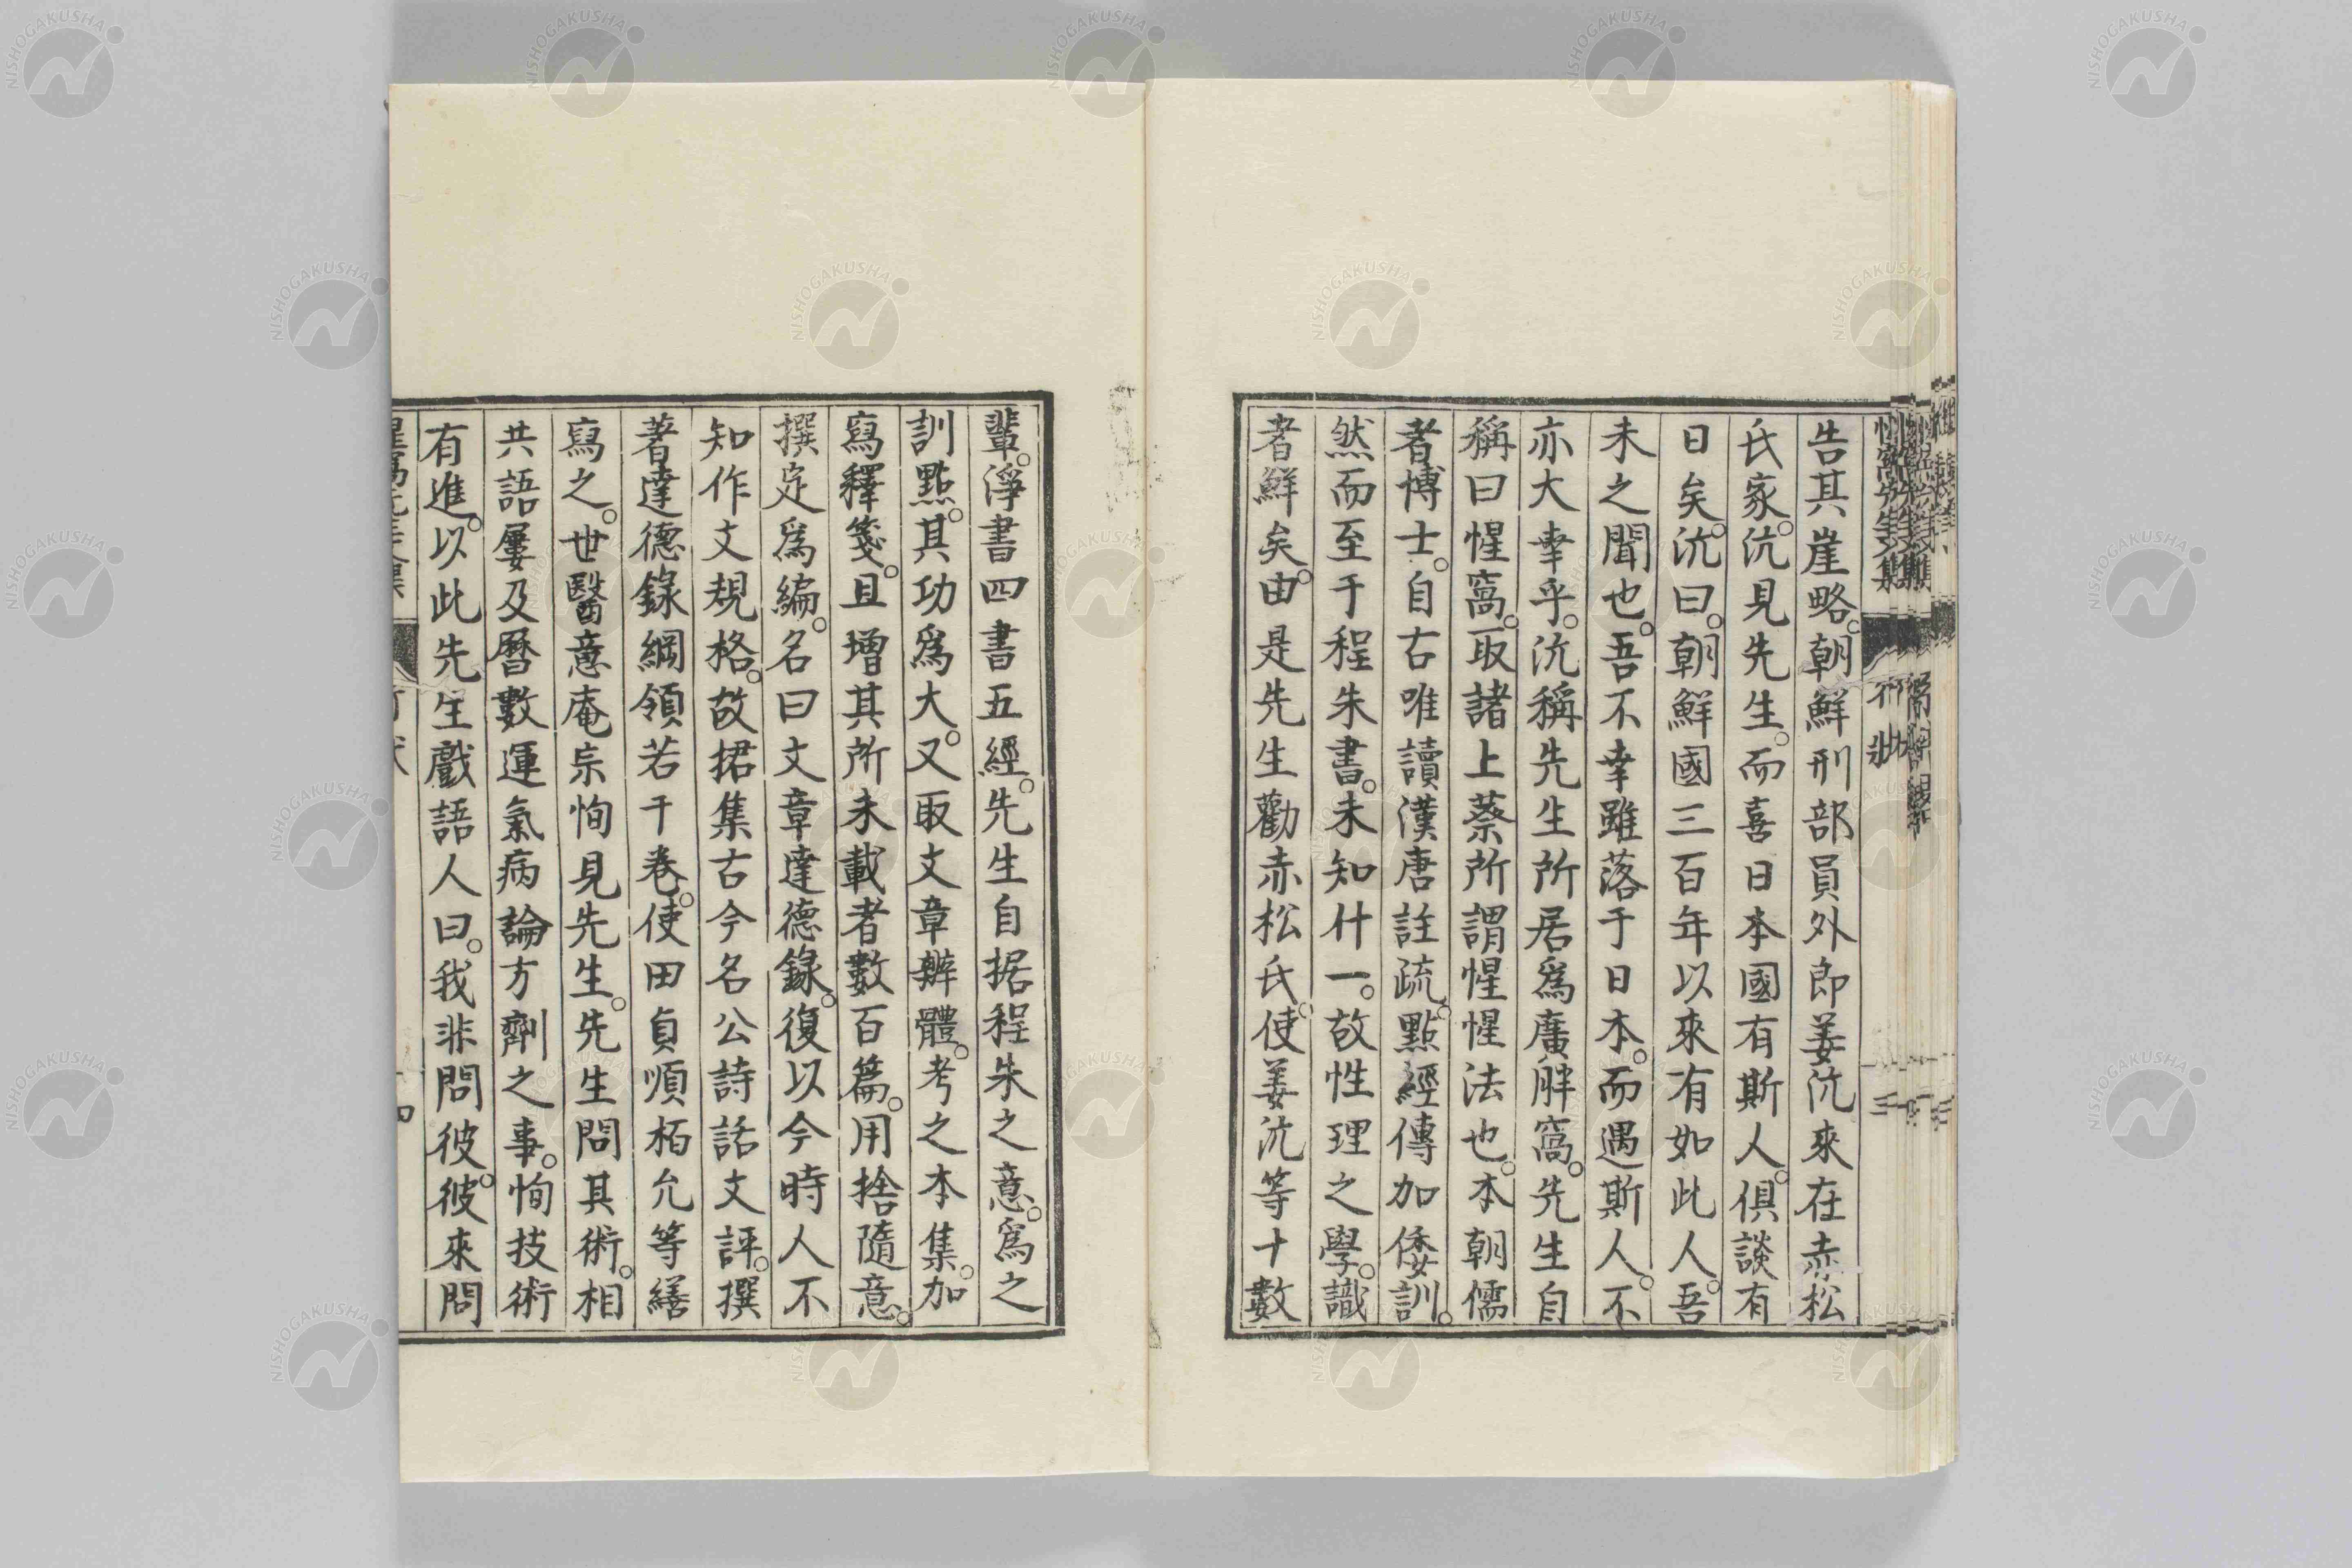 告其崖略。朝鮮刑部員外郎姜沆來在赤松
氏家。沆見先生。而喜日本國有斯人。俱談有
日矣。沆曰。朝鮮國三百年以來有如此人。吾
未之聞也。吾不幸雖落于日本。而遇斯人。不
亦大幸乎。沆稱先生所居爲廣胖窩。先生自
稱曰惺窩。取諸上蔡所謂惺惺法也。本朝儒
者博士。自古唯讀漢唐註疏。點經傳加倭訓。
然而至于程朱書。未知什一。故性理之學。識
者鮮矣。由是先生勸赤松氏。使姜沆等十數
輩。淨書四書五經。先生自据程朱之意。爲之
訓點。其功爲大。又取文章辨體。考之本集。加
寫釋箋。且增其所未載者數百篇。用捨隨意。
撰定爲編。名曰文章達德錄。復以今時人不
知作文規格。故捃集古今名公詩話文評。撰
著達德錄綱領若干卷。使田貞順栢允等繕
寫之。世醫意庵宗恂見先生。先生問其術。相
共語屢及曆數運氣病論方劑之事。恂技術
有進。以此先生戲語人曰。我非問彼。彼來問
NISHOGAKUSHA